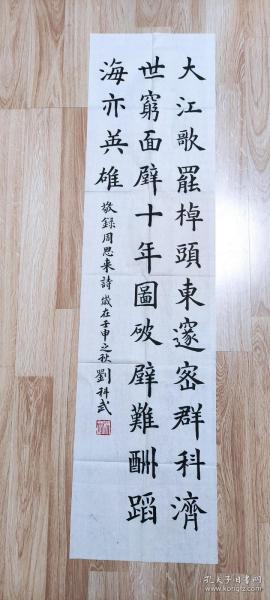 大江歌罷棹頭東邃密群科濟
世窮面壁十年圖破壁難酬蹈
海亦英雄
敬錄周恩来詩 歲在壬申之秋 劉科武
孔夫子旧书网